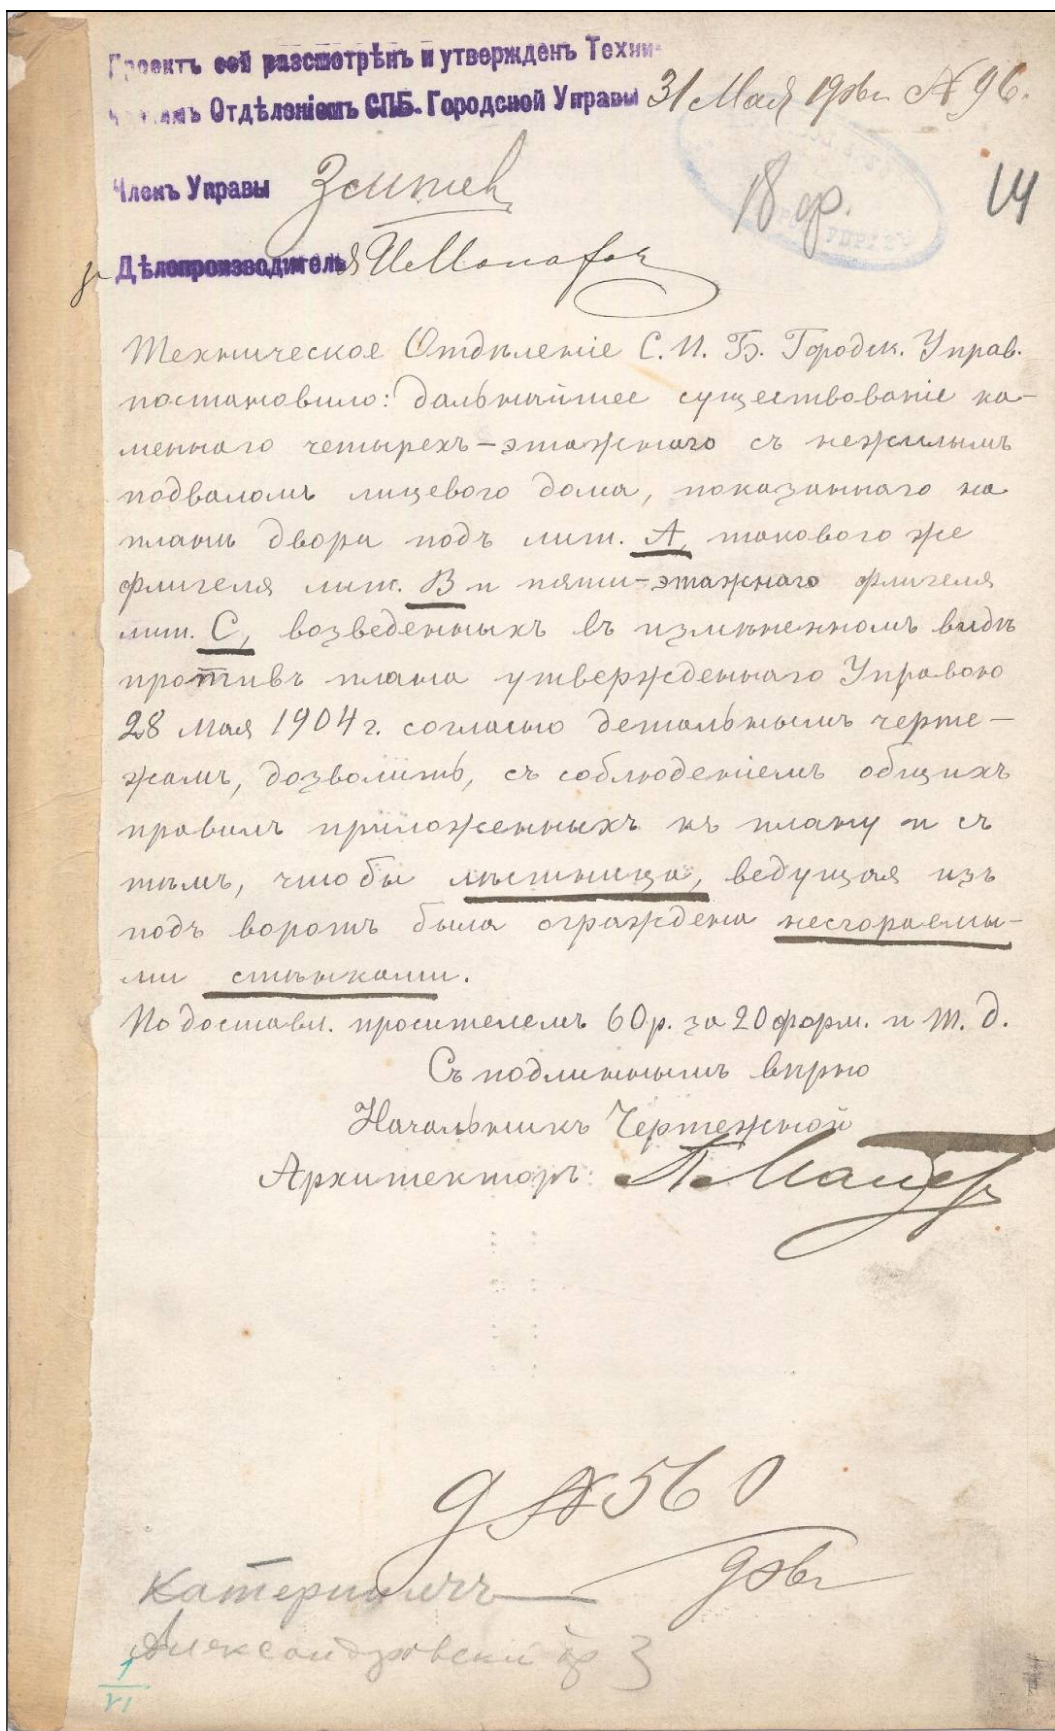 Проектъ сей разсмотрѣнъ и утвержденъ Техни-
Отдѣленіемъ СПБ. Городской Управы 31 Мая № 96.
18 ф. 14
Членъ Управы
Дѣлопроизводитель
Техническое Отдѣленіе С. П. Б. Городск. Управ.
постановило: дальнѣйшее существованіе ка-
меннаго четырехъ-этажнаго съ нежилымъ
подваломъ лицевого дома, показаннаго на
планѣ двора подъ лит. А, такового же
флигеля лит. В и пяти-этажнаго флигеля
лит. С, возведенныхъ въ измѣненномъ видѣ
противъ плана утвержденнаго Управою
28 мая 1904 г. согласно детальнымъ черте-
жамъ, дозволить, съ соблюденіемъ общихъ
правилъ приложенныхъ къ плану и съ
тѣмъ, чтобы лѣстница, ведущая изъ
подъ воротъ была ограждена несгораемы-
ми стѣнками.
По доставл. просителемъ 60 р. за 20 форм. и т. д.
Съ подлиннымъ вѣрно
Начальникъ Чертежной
Архитекторъ:
№ 560
Александровскій пр 3